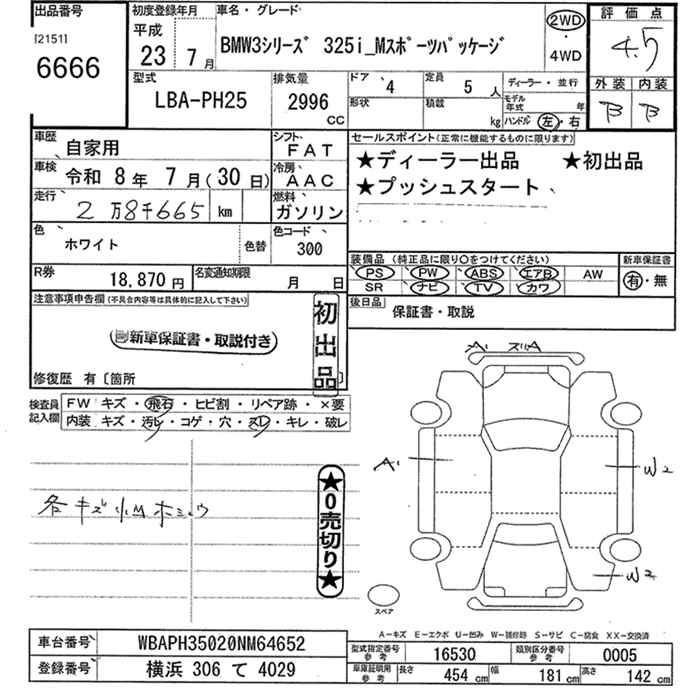 出品番号 初度登録年月 車名・グレード 2WD 評価点
[2151] 平成
6666 23年 7月 BMW3シリーズ 325i_Mスポーツパッケージ ・ 4WD 4.5
型式 排気量 ドア 4 定員 5人 ディーラー・並行 外装 内装
LBA-PH25 2996 cc 形状 積載 kg モデル年式 年 B B
ハンドル 左・右
車歴 自家用 シフト FAT セールスポイント(正常に機能するものに限ります)
車検 令和 8年 7月(30日) 冷房 AAC ★ディーラー出品 ★初出品
走行 2万8千665 km 燃料 ガソリン ★プッシュスタート
色 ホワイト 色替 色コード 300
装備品(純正品に限り○をつけてください) 新車保証書
R券 18,870円 名変通知期限 月 日 PS PW ABS エアB AW 有・無
SR ナビ TV カワ
注意事項申告欄(不具合内容等は具体的に記入して下さい) 初出品 後日品 保証書・取説
新車保証書・取説付き
修復歴 有〔箇所
検査員記入欄 FW キズ・飛石・ヒビ割・リペア跡・×要
内装 キズ・汚レ・コゲ・穴・スレ・キレ・破レ
A1 スリA
A1 W2
★0売切り★
各キズ小凹
W2
スペア
A-キズ E-エクボ U-凹み W-補修跡 S-サビ C-腐食 XX-交換済
車台番号 WBAPH35020NM64652 型式指定番号 参考 16530 類別区分番号 参考 0005
登録番号 横浜 306 て 4029 車庫証明用 参考 長さ 454 cm 幅 181 cm 高さ 142 cm